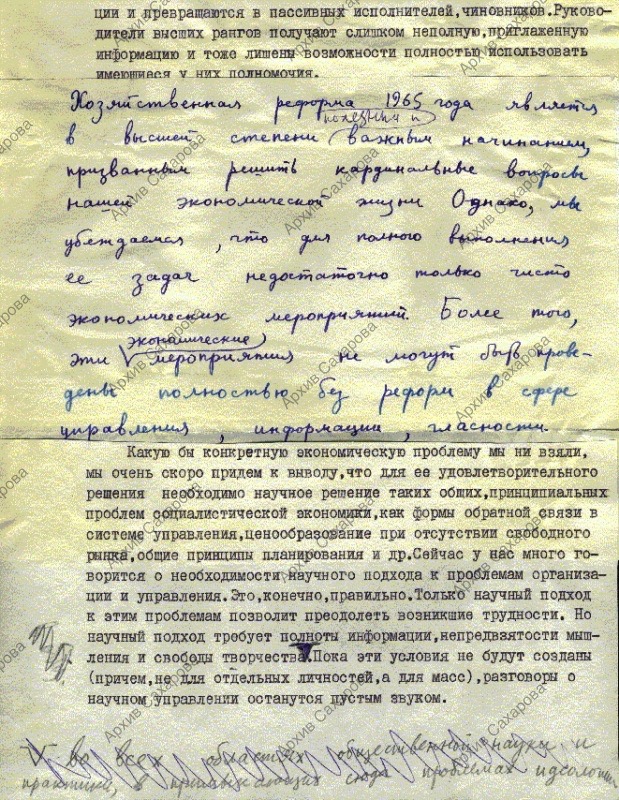 ции и превращаются в пассивных исполнителей,чиновников.Руково-
дители высших рангов получают слишком неполную,приглаженную
информацию и тоже лишены возможности полностью использовать
имеющиеся у них полномочия.
Хозяйственная реформа 1965 года является
полезным и
в высшей степени важным начинанием,
призванным решить кардинальные вопросы
нашей экономической жизни Однако, мы
убеждаемся, что для полного выполнения
ее задач недостаточно только чисто
экономических мероприятий. Более того,
экономические
эти мероприятия не могут быть прове-
дены полностью без реформ в сфере
управления, информации, гласности.
Какую бы конкретную экономическую проблему мы ни взяли,
мы очень скоро придем к выводу,что для ее удовлетворительного
решения необходимо научное решение таких общих,принципиальных
проблем социалистической экономики,как формы обратной связи в
системе управления,ценообразование при отсутствии свободного
рынка,общие принципы планирования и др.Сейчас у нас много го-
ворится о необходимости научного подхода к проблемам организа-
ции и управления.Это,конечно,правильно.Только научный подход
к этим проблемам позволит преодолеть возникшие трудности. Но
научный подход требует полноты информации,непредвзятости мыш-
ления и свободы творчества.Пока эти условия не будут созданы
(причем,не для отдельных личностей,а для масс),разговоры о
научном управлении останутся пустым звуком.
V во всех областях общественной науки и
практики, в примыкающих сюда проблемах идеологии
Архив Сахарова